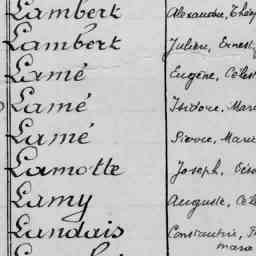 Lambert Alexandre, Théop
Lambert Julien, Ernest
Lamé Eugène, Célest
Lamé Isidore, Mari
Lamé Pierre, Marie
Lamotte Joseph,
Lamy Auguste, Cél
Landais Constantin,
Marie